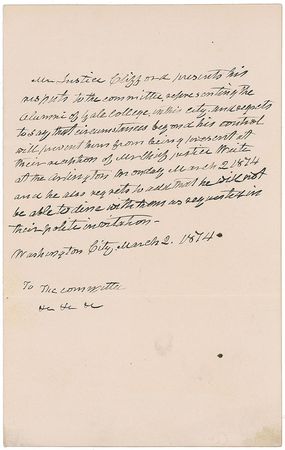 Mr Justice Clifford presents his
respects to the committee, representing the
Alumni of Yale College, in this city, and regrets
to say, that circumstances beyond his control
will prevent him from being present at
their reception of Mr Chief Justice Waite
at the Arlington on Monday March 2, 1874
and he also regrets to add that he will not
be able to dine with them as requested in
their polite invitation –
Washington City, March 2. 1874.
To The committee